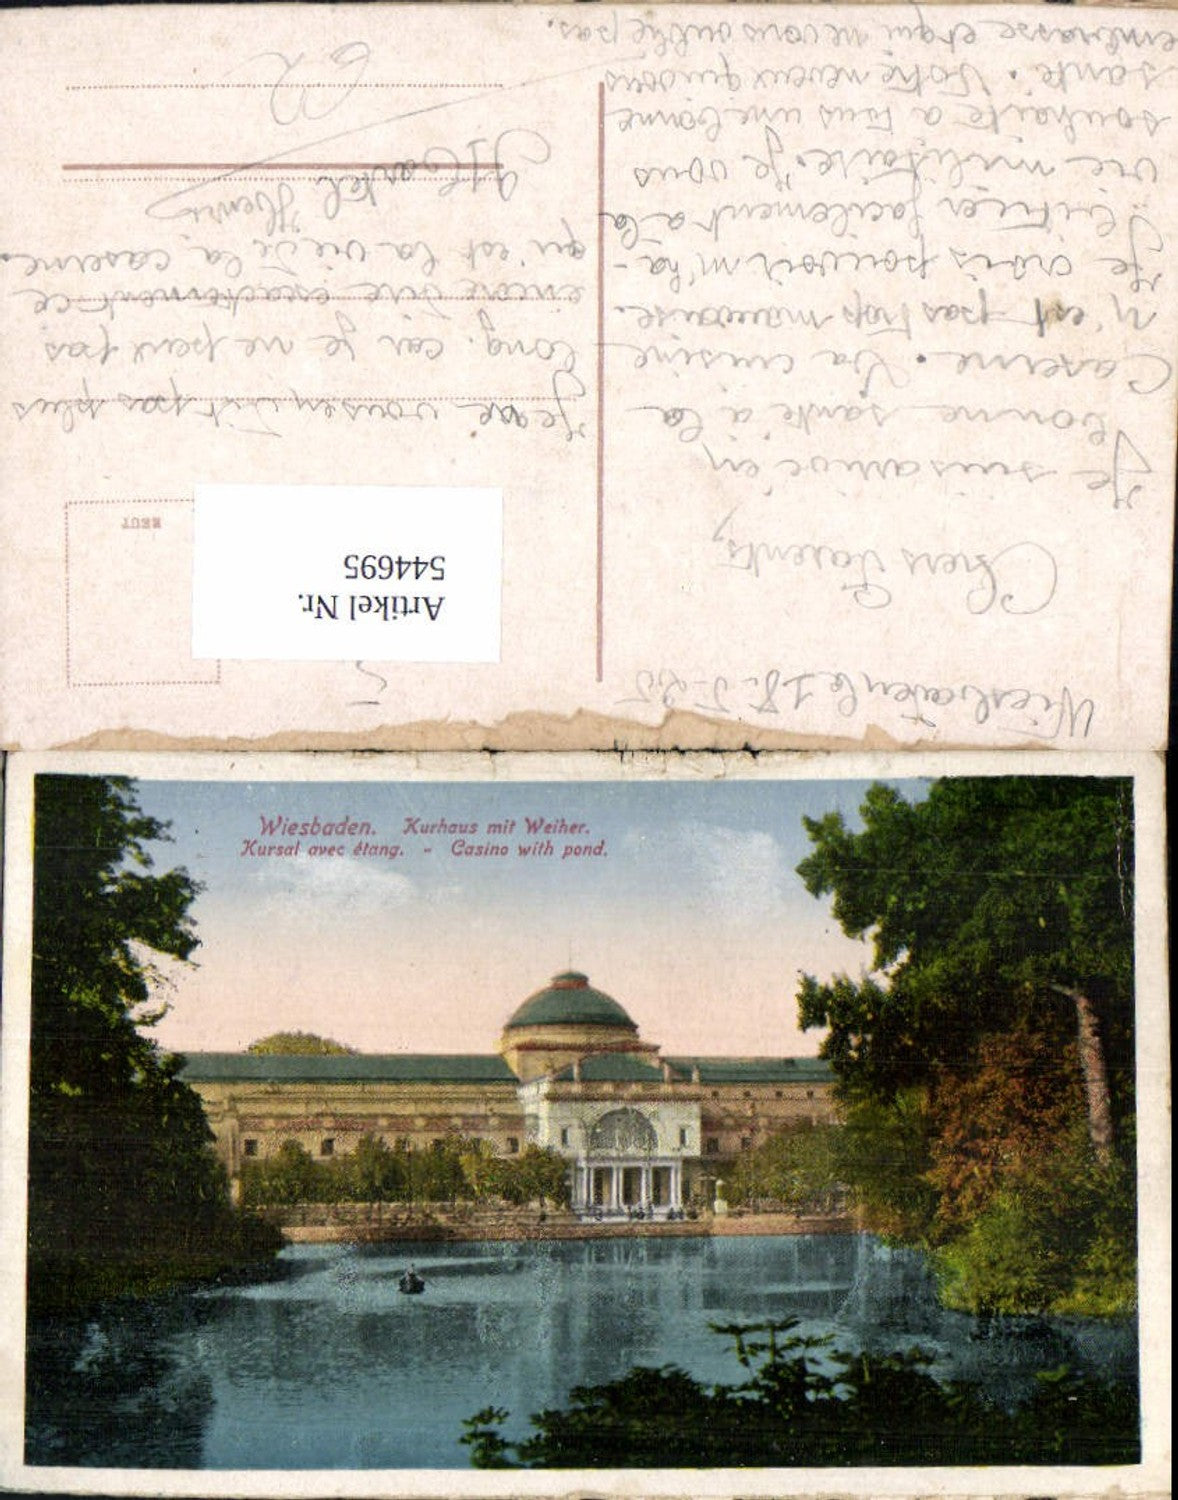 Wiesbaden le 18-5-25
Chers Parents,
Je suis arrivé en
bonne santé à la
Caserne. La cuisine
n'est pas trop mauvaise.
Je crois pouvoir m'ha-
bituer facilement à la
vie militaire. Je vous
souhaite à tous une bonne
santé. Votre neveu qui vous
embrasse et qui ne vous oublie pas.
Je ne vous en dit pas plus
long. car je ne peux pas
encore dire exactement ce
qu'est la vie de la caserne.
Henri
Artikel Nr.
544695
Wiesbaden. Kurhaus mit Weiher.
Kursal avec étang. - Casino with pond.